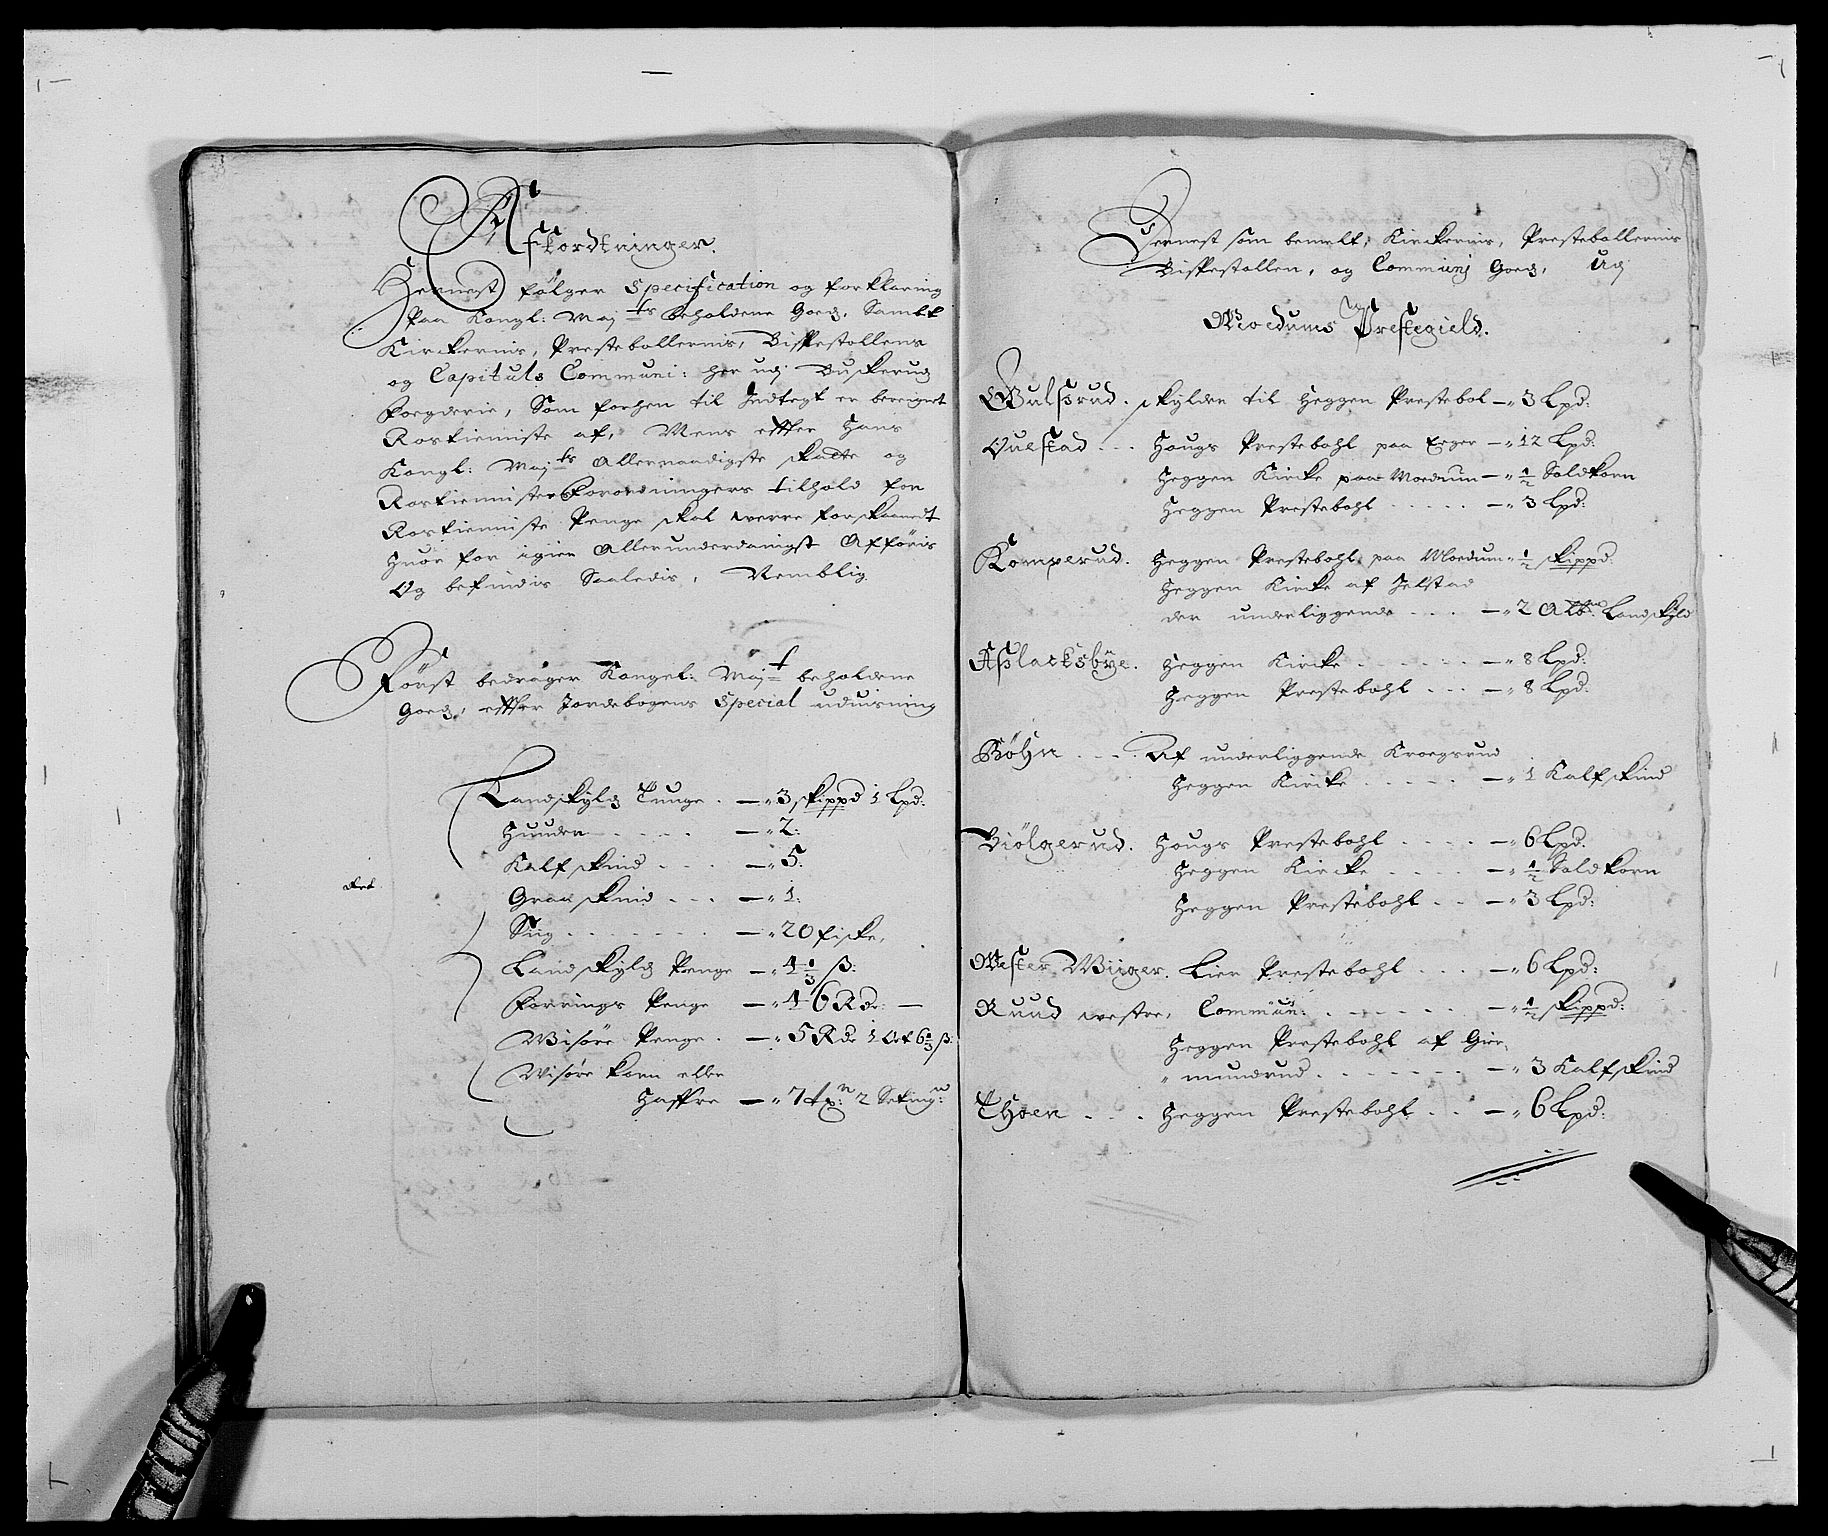 Afkordtninger.
Hernest følger Specification og forklaring
Paa Kongl: Maj:ts beholdene Goeds, Sambt
Kirckernis, Prestebollernis, Bispestollens
og Capituls Communi: her udj Buskerud
Foegderie, Som forhen til Indtegt er beregnet
Rostienniste af, Mens effter Hans
Kongl: Maj:ts Allernaadigste skatte og
Rostiennistes Forordningers tilhold for
Rostienniste Penge skal werre forskaanedt
Huor for igien Allerunderdanigst Afføris
Og befindis Saaledis, Nemblig
Først bedrager Kongel: Maj:t beholdene
Goeds, effter Jordebogens Special uduisning
Landskyld Tunge . — 3 skippd 1 Lpd:
Huuder . . . . — 2:
Kalfskind . . . — 5:
Graaskind . . . — 1:
Siig . . . . . . — 20 fiske,
Landskyld Penge — 4 1/3 ß:
Forrings Penge — 46 Rdr: —
Wisøre Penge . — 5 Rdr 1 Ort 6 2/3 ß:
Wisøre korn eller
Haffre — 7 tr:n 2 Seting:r
Dernest som bemelt, Kirckernis, Prestebollernis
Bispestollen, og Communj Goeds, Udj
Moedums Prestegield.
Gulsrud. skylder til Heggen Prestebol — 3 Lpd:
Ouestad . . . Hougs Prestebohl paa Eeger — 12 Lpd:
Heggen Kircke paa Moedum — 1/2 Soldkorn
Heggen Prestebohl . . . . . — 3 Lpd:
Komperud. Heggen Prestebohl paa Moedum 1/2 skippd:
Heggen Kircke af Jelstad
der underliggende . . . . — 2 Landskyld
Aslacksbye. Heggen Kircke . . . . . . — 8 Lpd:
Heggen Prestebohl . . . — 8 Lpd:
Bøhn . . . . Af underliggende Kroegsrud
Heggen Kircke . . . . . — 1 Kalfskind
Biølgerud. Hougs Prestebohl . . . . — 6 Lpd.
Heggen Kircke . . . . — 1/2 Soldkorn
Heggen Prestebohl . . — 3 Lpd:
Wester Wiiger. Lier Prestebohl . . . — 6 Lpd:
Ruud westre, Commun: . . . . . . — 1/2 skippd:
Heggen Prestebohl af Gier,
mundrud . . . . . . . — 3 Kalfskind
Thoen . . . Heggen Prestebohl . . — 6 Lpd: